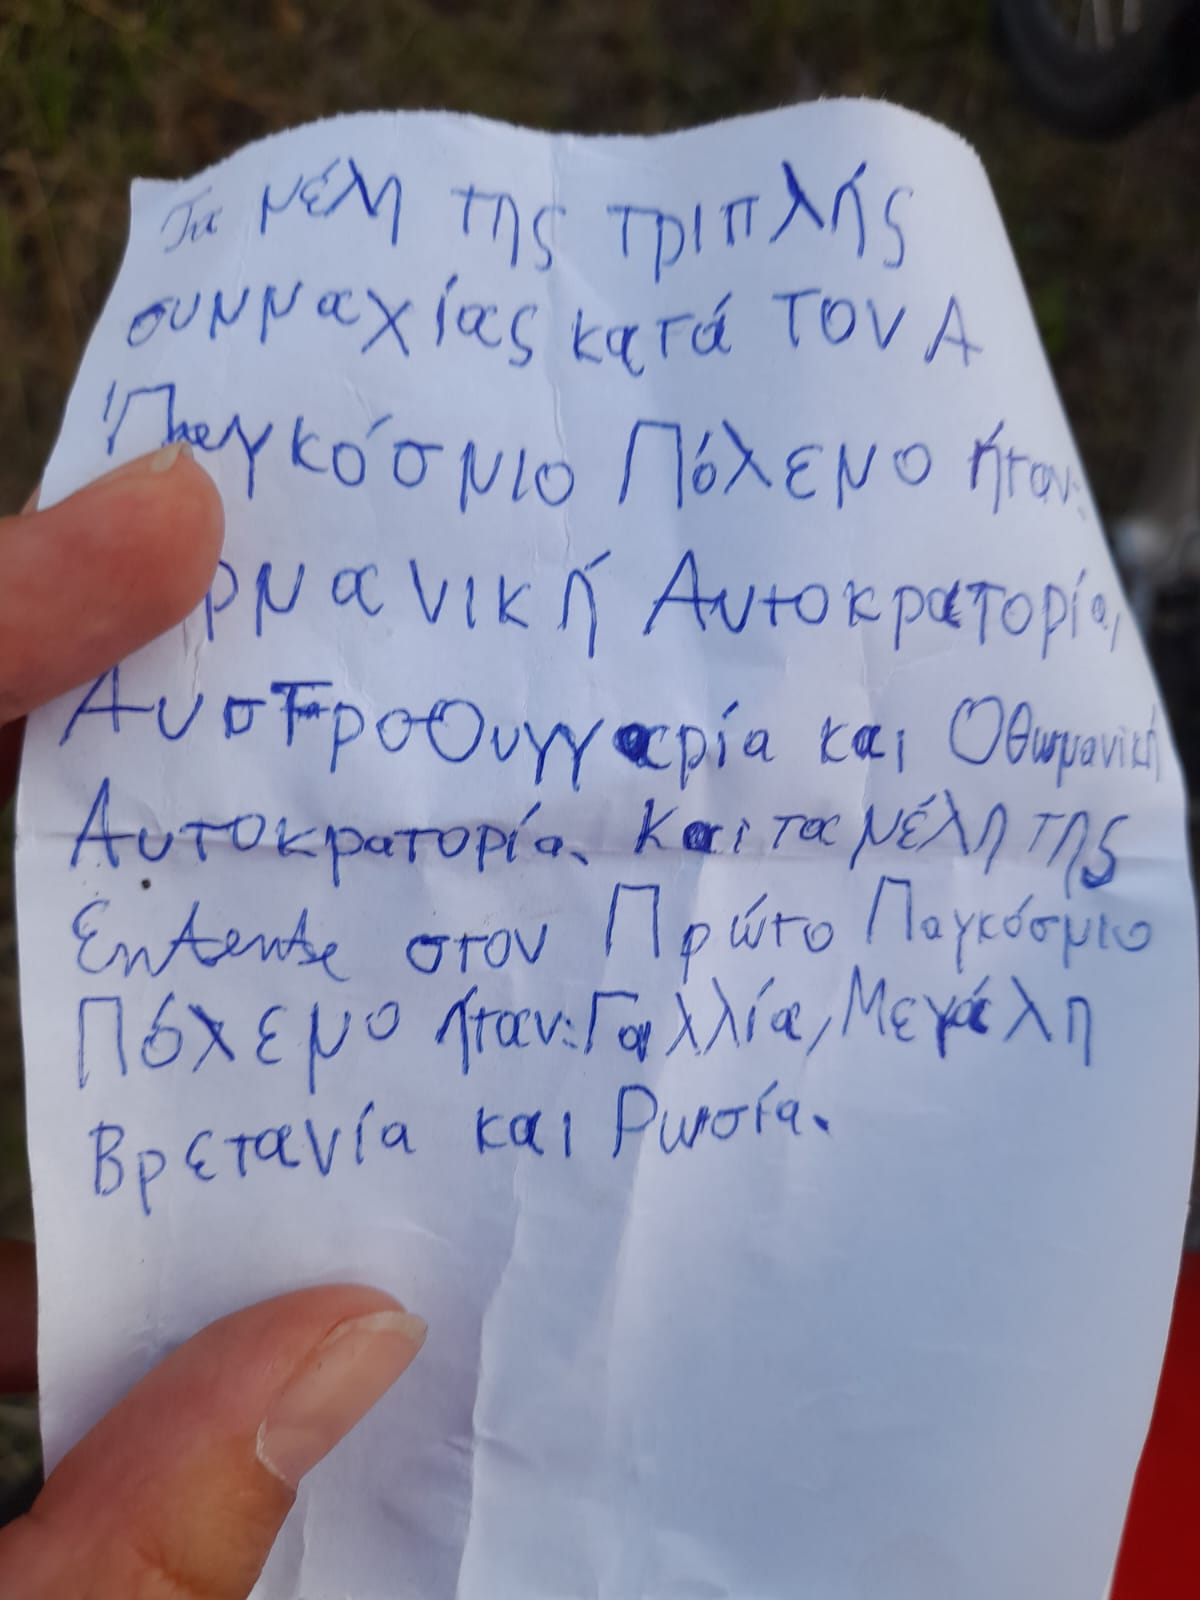 Τα μέλη της τριπλής
συμμαχίας κατά τον Α
Παγκόσμιο Πόλεμο ήταν:
ρμανική Αυτοκρατορία,
Αυστροουγγαρία και Οθωμανική
Αυτοκρατορία. Και τα μέλη της
Entente στον Πρώτο Παγκόσμιο
Πόλεμο ήταν: Γαλλία, Μεγάλη
Βρετανία και Ρωσία.